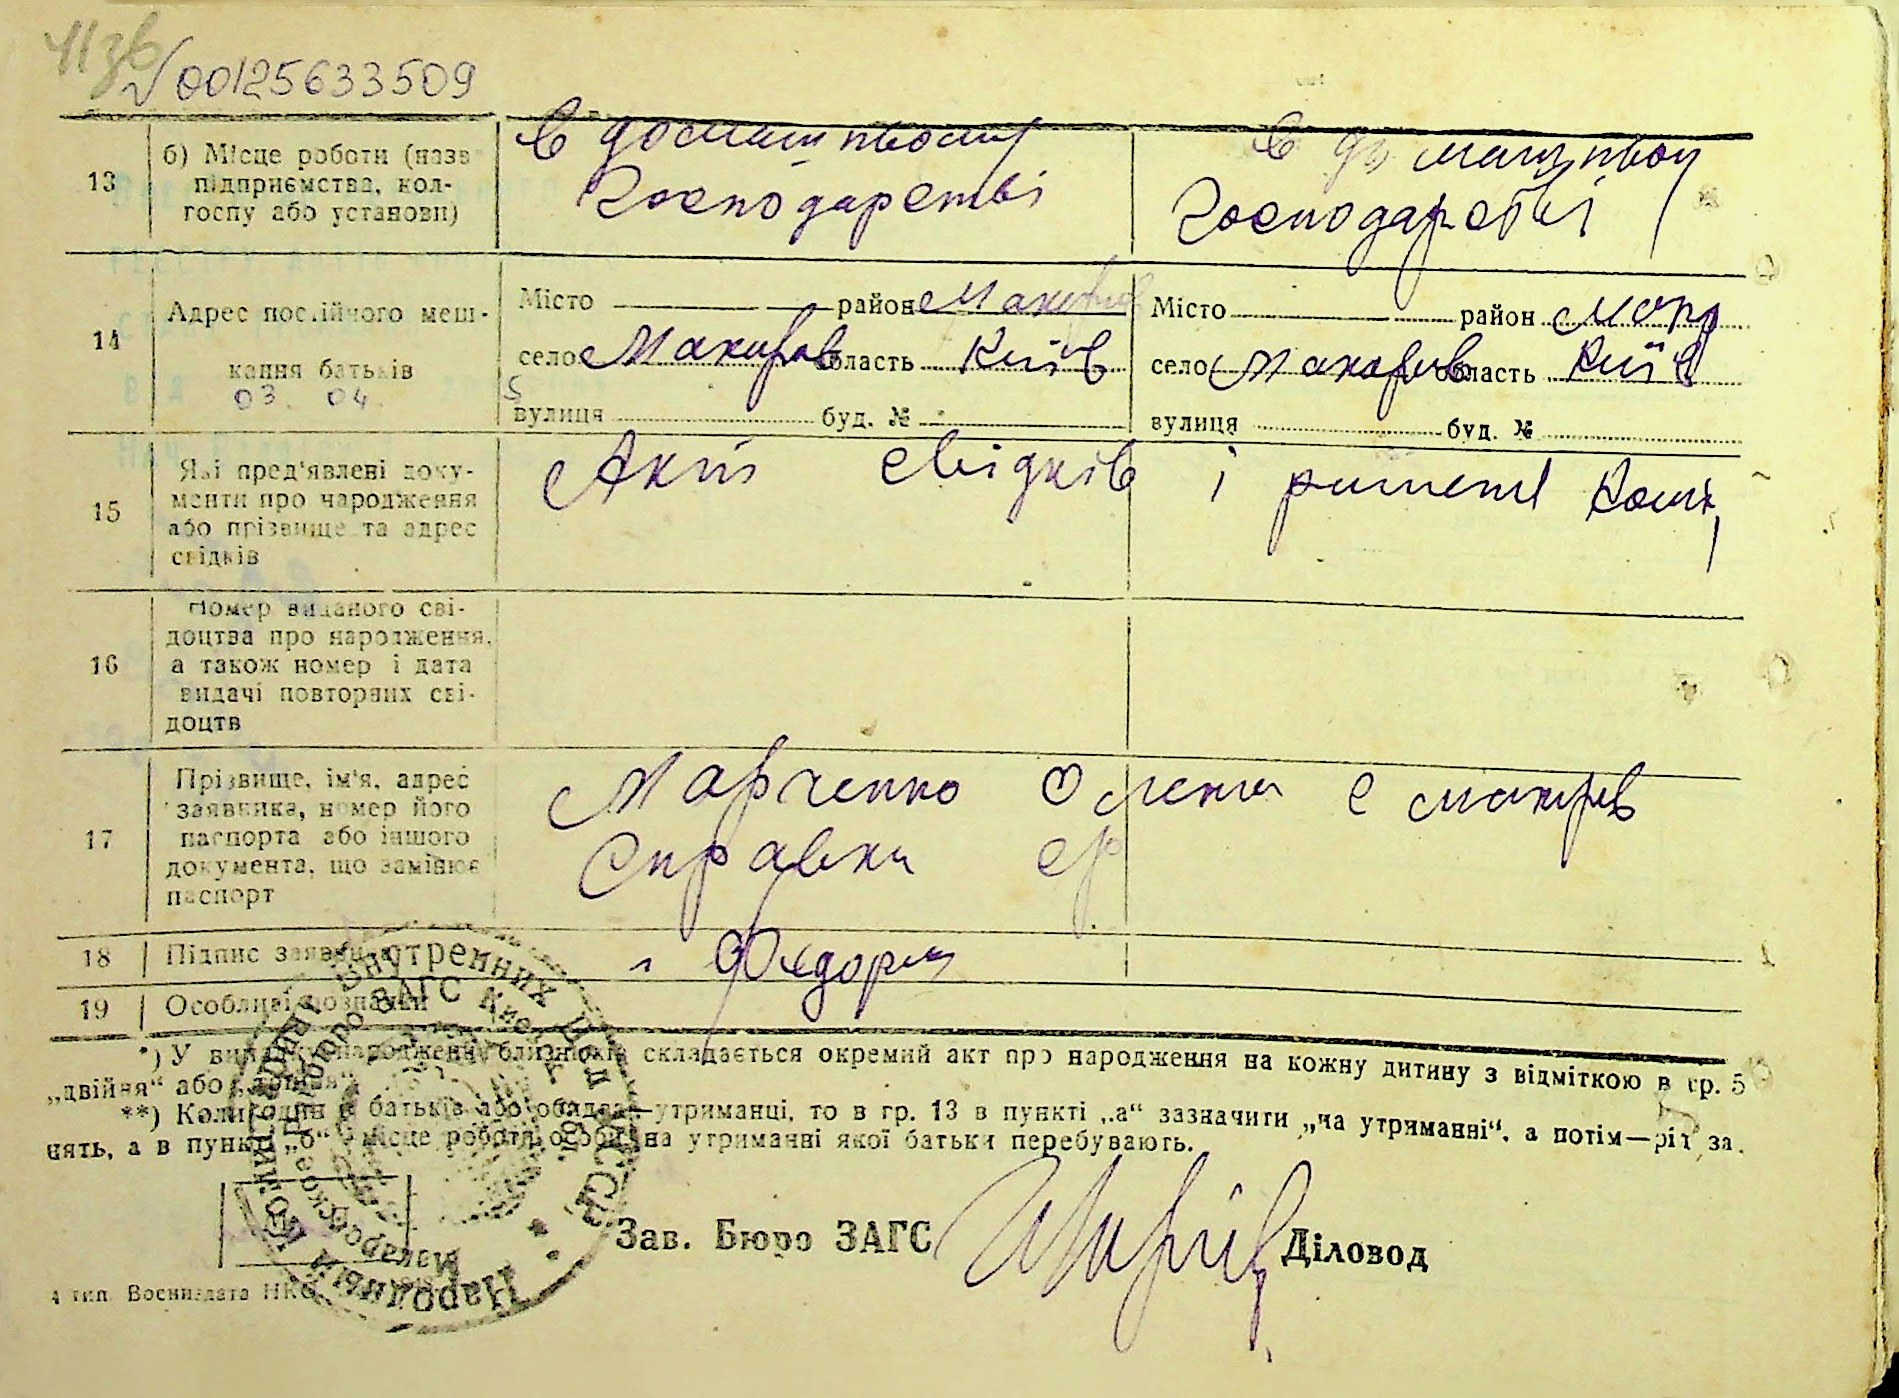 00125633509
13 б) Місце роботи (назв
підприємства, кол-
госпу або установи)
в домашньому
господарстві
в домашньому
господарстві
14 Адрес постійного меш-
кання батьків
03 04
Місто район Макарів
село Макарів область Київ
вулиця буд. №
Місто район Мака
село Макарів область Київ
вулиця буд. №
15 Які пред'явлені доку-
менти про народження
або прізвище та адрес
свідків
Акт свідків і рішення коміс,
16 Номер виданого сві-
доцтва про народження,
а також номер і дата
видачі повторних сві-
доцтв
17 Прізвище, ім'я, адрес
заявника, номер його
паспорта або іншого
документа, що замінює
паспорт
Марченко Олена с Макарів
Справка ср
18 Підпис заявника
19 Особливі позначки
*) У випадку народження близнюків складається окремий акт про народження на кожну дитину з відміткою в гр. 5
„двійня“ або „тройня“.
**) Коли один із батьків або обидва—утриманці, то в гр. 13 в пункті „а“ зазначити „на утриманні“, а потім—рід за-
нять, а в пункті „б“ місце роботи особи, на утриманні якої батьки перебувають.
Зав. Бюро ЗАГС Діловод
4 тип. Воениздата НКО
Народный Комиссариат Внутренних Дел УССР
Макаровское Районное Бюро ЗАГС Киевской обл.